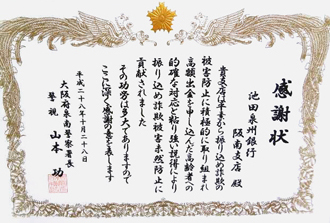 感謝状
池田泉州銀行
阪南支店 殿
貴支店は平素から振り込め詐欺の
被害防止に積極的に取り組まれ
高額出金を申し込んだ高齢者への
的確な対応と粘り強い説得により
振り込め詐欺被害未然防止に
貢献されました
その功労は多大でありますので
ここに深く感謝の意を表します
平成二十八年十月二十八日
大阪府泉南警察署長
警視 山本 功